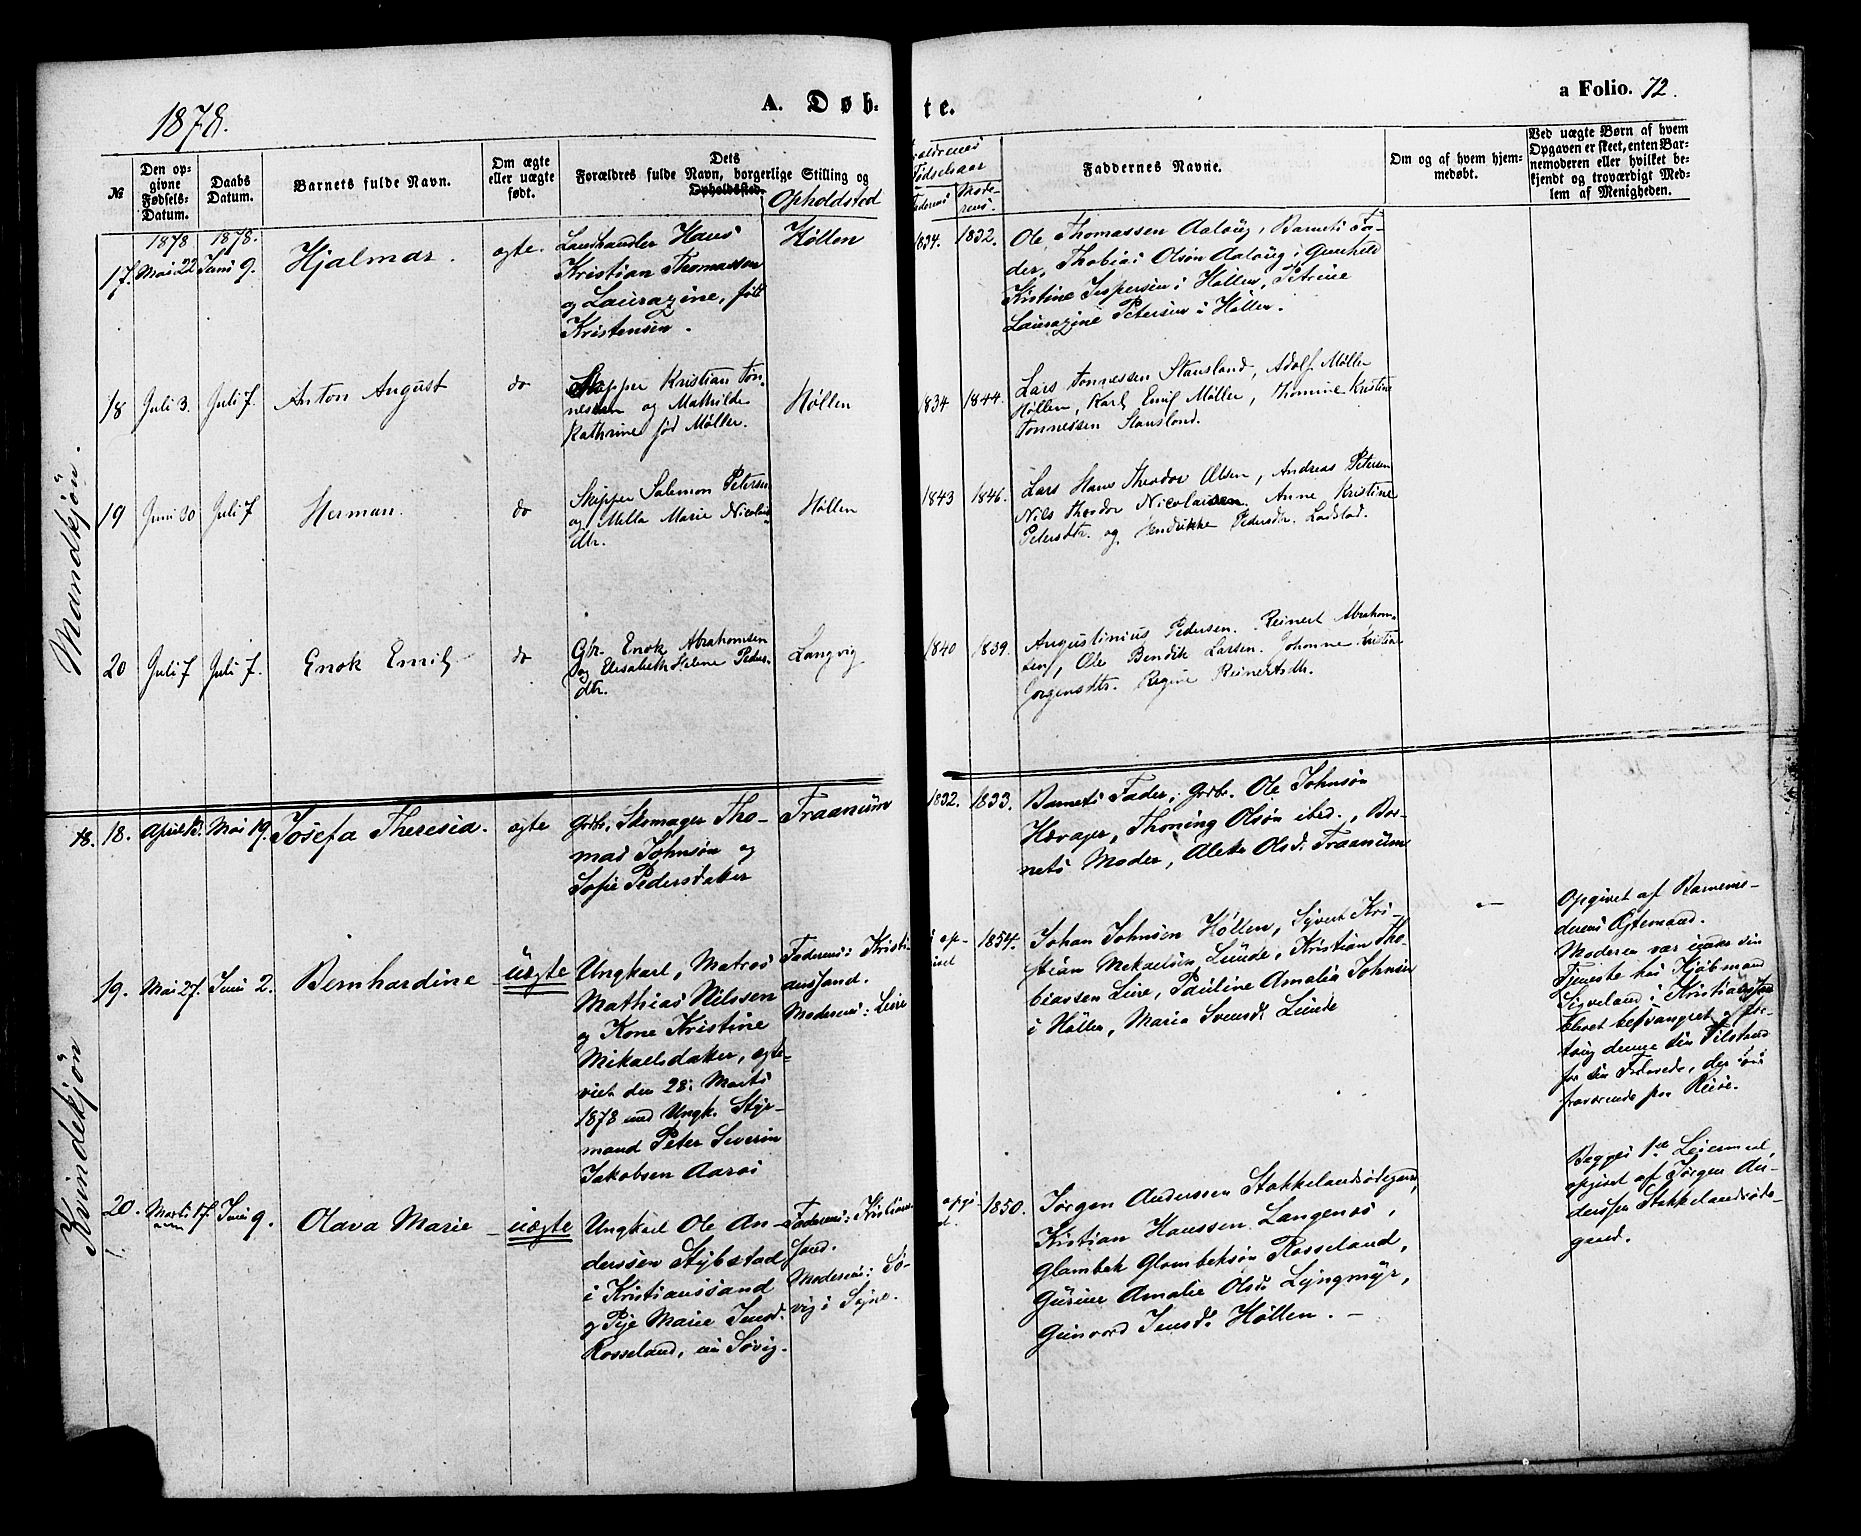 1878.
A. Døb-
te.
a Folio. 72.
№
Den op-
givne
Fødsels-
Datum.
Daabs
Datum.
Barnets fulde Navn.
Om ægte
eller uægte
født.
Dets
Forældres fulde Navn, borgerlige Stilling og
Opholdssted.
Opholdsted
Fødselsaar
Mode-
rens.
Faddernes Navne.
Om og af hvem hjem-
medøbt.
Ved uægte Børn af hvem
Opgaven er skeet, enten Bar-
nemoderen eller hvilket be-
kjendt og troværdigt Med-
lem af Menigheden.
Mandkjøn.
17.
1878
Mai 22
1878.
Juni 9.
Hjalmar.
ægte.
Landhandler Hans
Kristian Thomassen
og Laurazine, født
Kristensen.
Høllen
1834.
1832.
Ole Thomassen Aaløug, Barnets Fa-
der, Thobias Olsøn Aaløug, Gunhild
Kistine Jespersen i Høllen, Petrine
Laurazine Petersen i Høllen.
18
Juli 3.
Juli 7.
Anton August
do
Skipper Kristian Tøn-
nessen og Mathilde
Kathrine fød Møller.
Høllen
1834
1844.
Lars Tønnessen Stausland, Adolf Møller
Høllen, Karl Emil Møller, Thomine Kristine
Tønnessen Stausland.
19
Juni 30
Juli 7
Herman.
do
Skipper Salemon Petersen
og Milla Marie Nicolais-
dtr.
Høllen
1843
1846.
Lars Hans Theodor Olsen, Andreas Petersen
Nils Theodor Nicolaisen, Anne Kristine
Petersdtr. og Hendrikke Pedersdtr. Ladstad.
20
Juli 7
Juli 7.
Enok Emil
do
Gbr. Enok Abrahamsen
og Elisabeth Helene Peders-
dtr.
Langvig
1840
1839.
Augustinius Pedersen. Reinert Abraham-
sen, Ole Bendik Larsen. Johanne Kristine
Jørgensdtr. Regine Reinertsdtr.
Kvindekjøn
18.
18.
April 13.
Mai 19.
Josefa Theresia.
ægte
Grdbr, Skomager Tho-
mas Johnsøn og
Sofie Pedersdatter
Traanum
1832.
1833.
Barnets Fader, Grdbr. Ole Johnsøn
Hævager, Thoning Olsøn ibed., Bar-
nets Moder, Alette Olsd. Traanum
19.
Mai 27.
Juni 2.
Bernhardine
uægte
Ungkarl, Matros
Mathias Nilssen
og Kone Kristine
Mikaelsdatter, ægte-
viet den 28. Marts
1878 med Ungk. Styr-
mand Peter Severin
Jakobsen Aaros
Faderens: Kristi-
anssand.
Moderens: Leire
1854.
Johan Johnsen Høllen, Syvert Kri-
stian Mekaelsen Lunde, Kristian Tho-
biassen Leire, Pauline Amalia Johnsen
i Høllen, Maria Svensd. Lunde
Opgivet af Barnemo-
derens Ægtemand.
Moderen var under sin
Tjeneste hos Kjøbmand
Sigveland i Kristianssand
blevet besvangret
denne sin Tilstand
for sin Forlovede, der
fraværende paa Reise.
20.
Marts 17.
Juni 9.
Olava Marie
uægte
Ungkarl Ole An-
derssen Stybstad
i Kristianssand
og Pije Marie Jensd.
Rosseland, nu Søvig.
Faderens: Kristians-
sand.
Moderens: Sø-
vig i Søgne.
1850.
Jørgen Anderssen Stokkelandsødegaard,
Kristian Hanssen Langenes,
Glambek Glambeksøn Rosseland,
Gurine Amalie Olsd. Lyngmyr,
Gunvord Jensd. Høllen.
Begges 1ste Leiermaal,
opgivet af Jørgen An-
derssen Stokkelandsøde-
gaard.